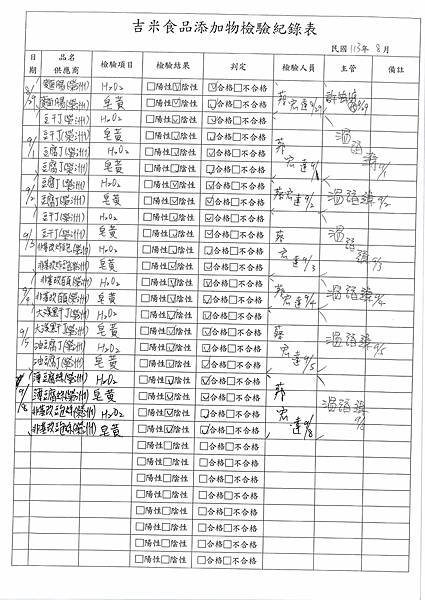 吉米食品添加物檢驗紀錄表
民國 113年 8月
日期 品名供應商 檢驗項目 檢驗結果 判定 檢驗人員 主管 備註
8/29 麵腸(榮洲) H2O2 □陽性☑陰性 ☑合格□不合格
麵腸(榮洲) 皂黃 □陽性☑陰性 ☑合格□不合格
豆干丁(榮洲) H2O2 □陽性☑陰性 ☑合格□不合格
9/1 豆干丁(榮洲) 皂黃 □陽性☑陰性 ☑合格□不合格
豆腐丁(榮洲) H2O2 □陽性☑陰性 ☑合格□不合格
豆腐丁(榮洲) 皂黃 □陽性☑陰性 ☑合格□不合格
9/2 豆腐丁(榮洲) H2O2 □陽性☑陰性 ☑合格□不合格
豆腐丁(榮洲) 皂黃 □陽性☑陰性 ☑合格□不合格 蔡宏達9/2 9/2
豆干丁(榮洲) H2O2 □陽性☑陰性 ☑合格□不合格
9/3 豆干丁(榮洲) 皂黃 □陽性☑陰性 ☑合格□不合格
非基改(榮洲) H2O2 □陽性☑陰性 ☑合格□不合格
非基改(榮洲) 皂黃 □陽性☑陰性 ☑合格□不合格 宏達9/3 9/3
9/4 非基改(榮洲) H2O2 □陽性☑陰性 ☑合格□不合格
非基改(榮洲) 皂黃 □陽性☑陰性 ☑合格□不合格 宏達9/4 9/4
大溪黑干丁(榮洲) H2O2 □陽性☑陰性 ☑合格□不合格
9/5 大溪黑干丁(榮洲) 皂黃 □陽性☑陰性 ☑合格□不合格
油豆腐丁(榮洲) H2O2 □陽性☑陰性 ☑合格□不合格
油豆腐丁(榮洲) 皂黃 □陽性☑陰性 ☑合格□不合格 宏達9/5 9/5
薄豆腐(榮洲) H2O2 □陽性☑陰性 ☑合格□不合格
9/8 薄豆腐(榮洲) 皂黃 □陽性☑陰性 ☑合格□不合格
非基改(榮洲) H2O2 □陽性☑陰性 ☑合格□不合格
非基改(榮洲) 皂黃 □陽性☑陰性 ☑合格□不合格 宏達9/8 9/8
□陽性□陰性 □合格□不合格
□陽性□陰性 □合格□不合格
□陽性□陰性 □合格□不合格
□陽性□陰性 □合格□不合格
□陽性□陰性 □合格□不合格
□陽性□陰性 □合格□不合格
□陽性□陰性 □合格□不合格
□陽性□陰性 □合格□不合格